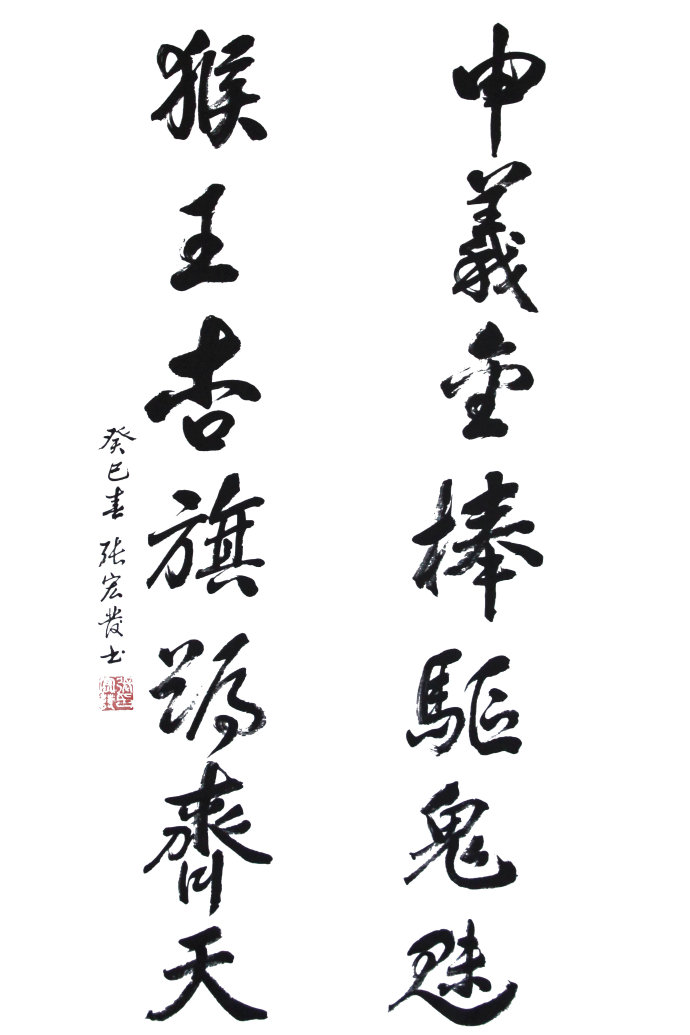 申義金棒驅鬼魅
猴王杏旗號齊天
癸巳春 張宏發書